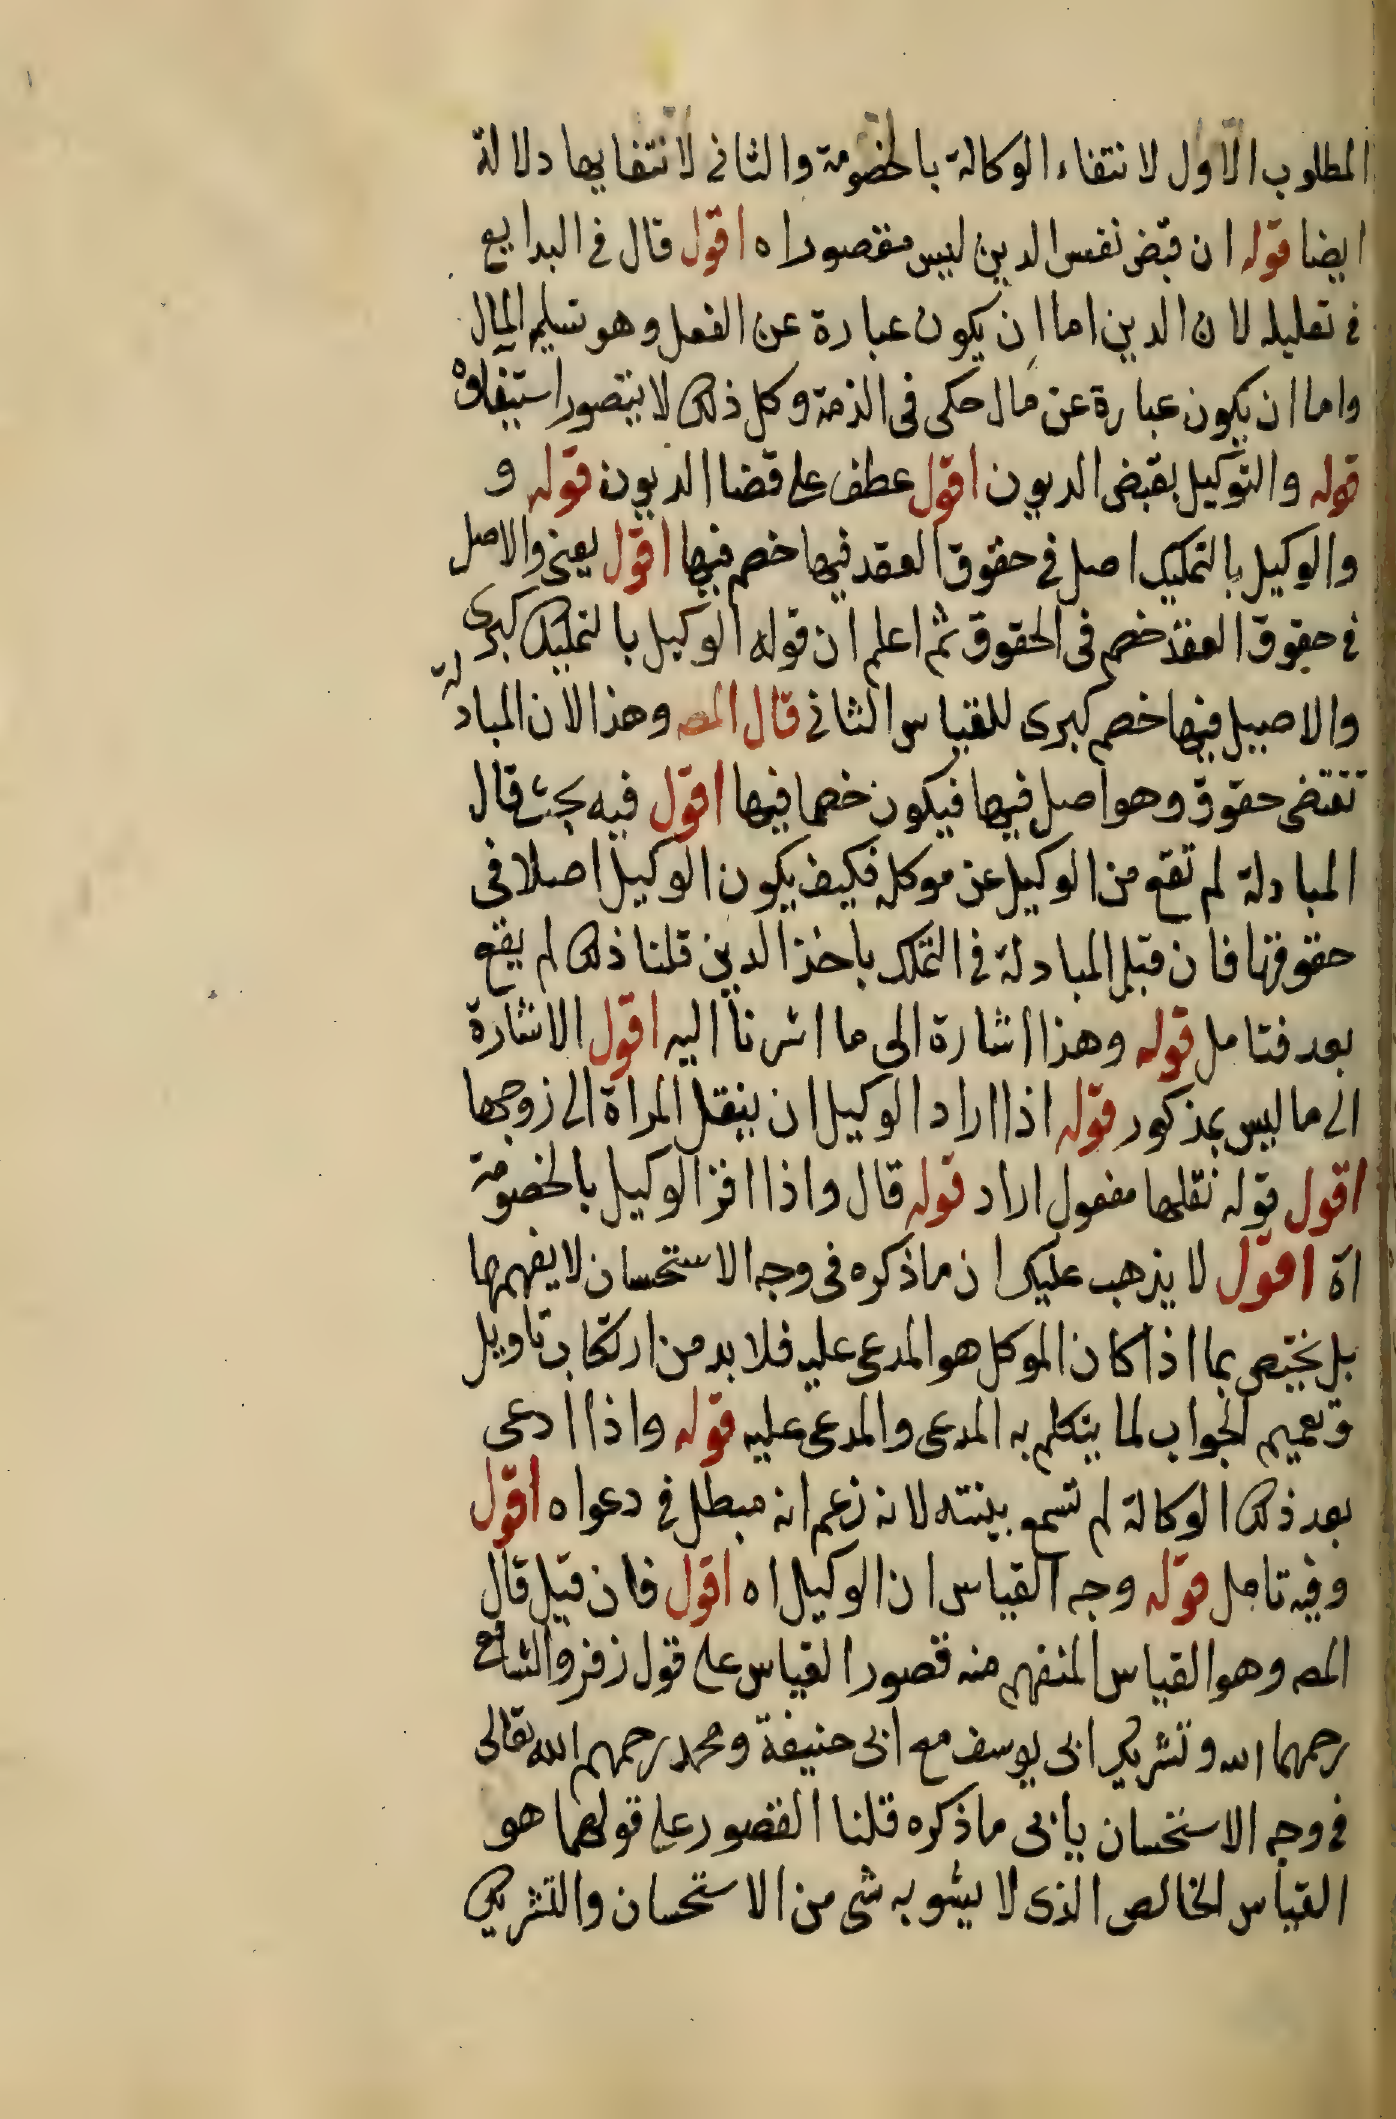 المطلوب الاول لانتفاء الوكالة بالخصومة والثانى لانتفايها دلالة
ايضا قوله ان قبض نفس الدين ليس مقصورا اه اقول قال فى البدايع
فى تعليله لان الدين اما ان يكون عبارة عن الفعل وهو تسليم المال
واما ان يكون عبارة عن مال حكمى فى الذمة وكل ذلك لا يتصور استيفاؤه
قوله والتوكيل بقبض الديون اقول عطف على قضا الديون قوله و
والوكيل بالتمليك اصل فى حقوق العقد فيها خصم فيها اقول يعنى والاصل
فى حقوق العقد خصم فى الحقوق ثم اعلم ان قوله الوكيل بالتمليك كبرى
والاصيل فيها خصم كبرى للقياس الثانى قال المصـ وهذا لان المبادلة
تقتضى حقوق وهو اصل فيها فيكون خصما فيها اقول فيه بحث قال
المبادلة لم تقع من الوكيل عن موكله فكيف يكون الوكيل اصلا فى
حقوقها فان قبل المبادلة فى التملك باخذ الدين قلنا ذلك لم يقع
بعد فتامل قوله وهذا اشارة الى ما اشرنا اليه اقول الاشارة
الى ما ليس بمذكور قوله اذا اراد الوكيل ان ينقل المراة الى زوجها
اقول قوله نقلها مفعول اراد قوله قال واذا اقر الوكيل بالخصومة
اه اقول لا يذهب عليك ان ما ذكره فى وجه الاستحسان لا يفهمها
بل يختص بما اذا كان الموكل هو المدعى عليه فلا بد من ارتكاب تاويل
وتعميم الجواب لما يتكلم به المدعى والمدعى عليه قوله واذا ادعى
بعد ذلك الوكالة لم تسمع بينته لانه زعم انه مبطل فى دعواه اقول
وفيه تامل قوله وجه القياس ان الوكيل اه اقول فان قيل قال
المصـ وهو القياس المنفهم منه قصور القياس على قول زفر والشافع
رحمهما الله وتشريك ابى يوسف مع ابى حنيفة ومحمد رحمهم الله تعالى
فى وجه الاستحسان يابى ما ذكره قلنا القصور على قولهما هو
القياس الخالص الذى لا يشوبه شى من الاستحسان والتشريك